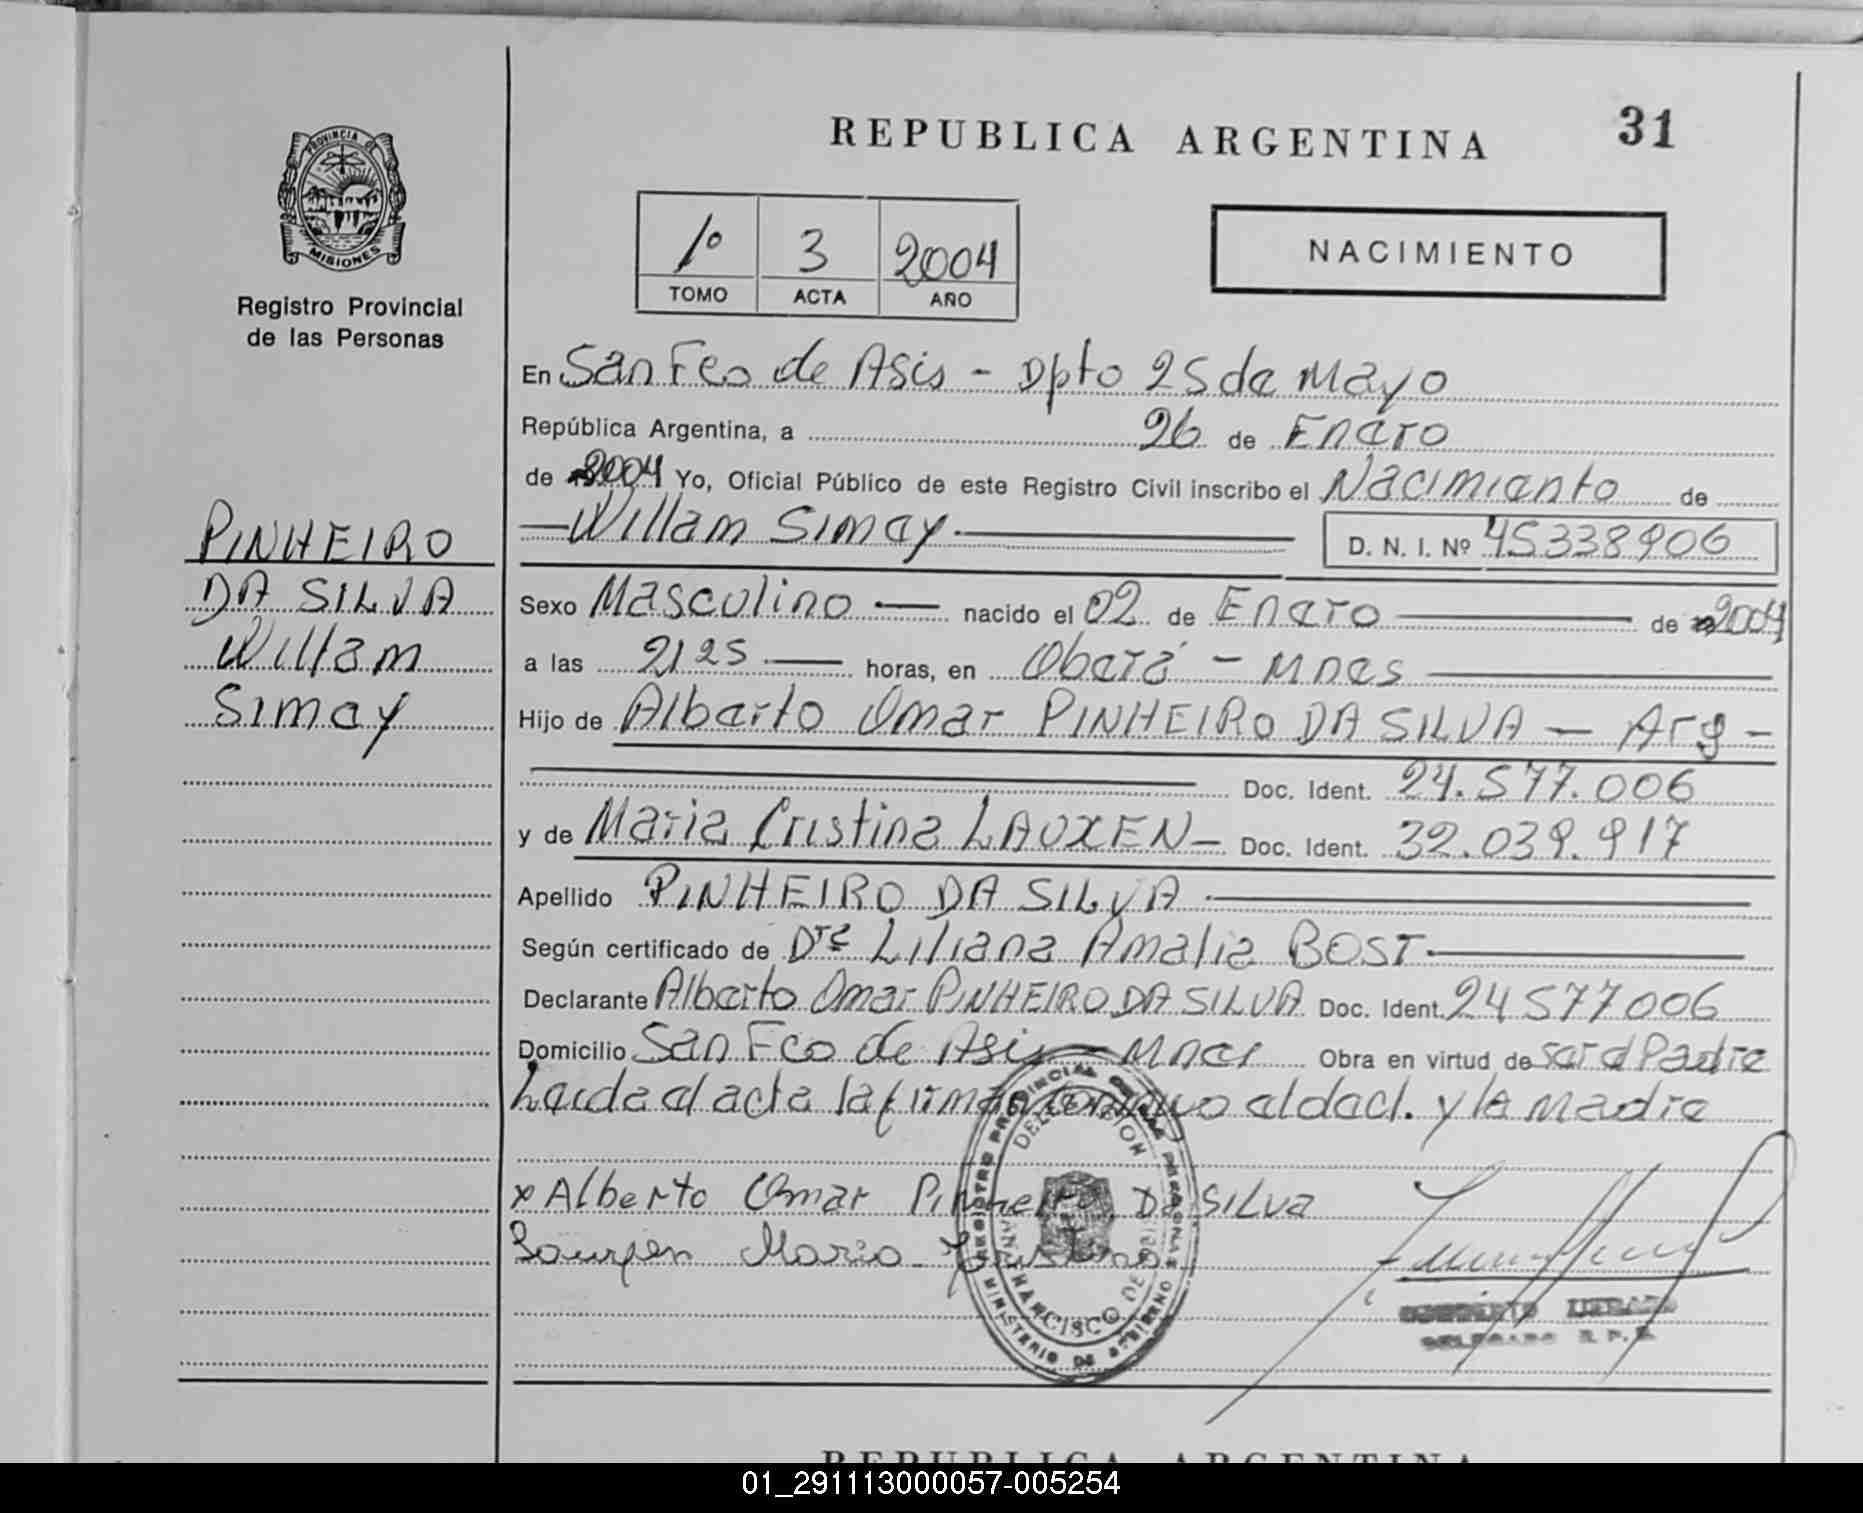 REPUBLICA ARGENTINA 31
PROVINCIA DE
MISIONES
Registro Provincial
de las Personas
1º 3 2004
TOMO ACTA AÑO
NACIMIENTO
En San Fco de Asis - Dpto 25 de Mayo
República Argentina, a 26 de Enero
de 2004 Yo, Oficial Público de este Registro Civil inscribo el Nacimiento de
Willam Simey D. N. I. Nº 45338906
PINHEIRO
DA SILVA
Willam
Simey
Sexo Masculino nacido el 02 de Enero de 2004
a las 2125 horas, en Oberá - Mnes
Hijo de Alberto Omar PINHEIRO DA SILVA - Arg -
Doc. Ident. 24.577.006
y de Maria Cristina LAUXEN - Doc. Ident. 32.039.917
Apellido PINHEIRO DA SILVA
Según certificado de Dra Liliana Amalia BOST
Declarante Alberto Omar PINHEIRO DA SILVA Doc. Ident. 24577006
Domicilio San Fco de Asis - Mnes Obra en virtud de ser el Padre
Leida el acta la firman conmigo el decl. y la Madre
x Alberto Omar Pinheiro Da Silva
Lauxen Maria Cristina
REGISTRO PROVINCIAL DE LAS PERSONAS
MINISTERIO DE GOBIERNO
DELEGACION
SAN FRANCISCO DE ASIS
DELEGADO R. P. P.
REPUBLICA ARGENTINA
01_291113000057-005254